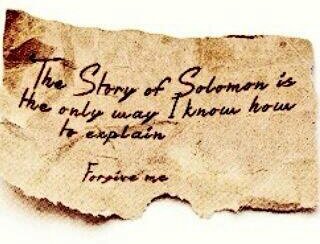 The Story of Solomon is
the only way I know how
to explain
Forgive me